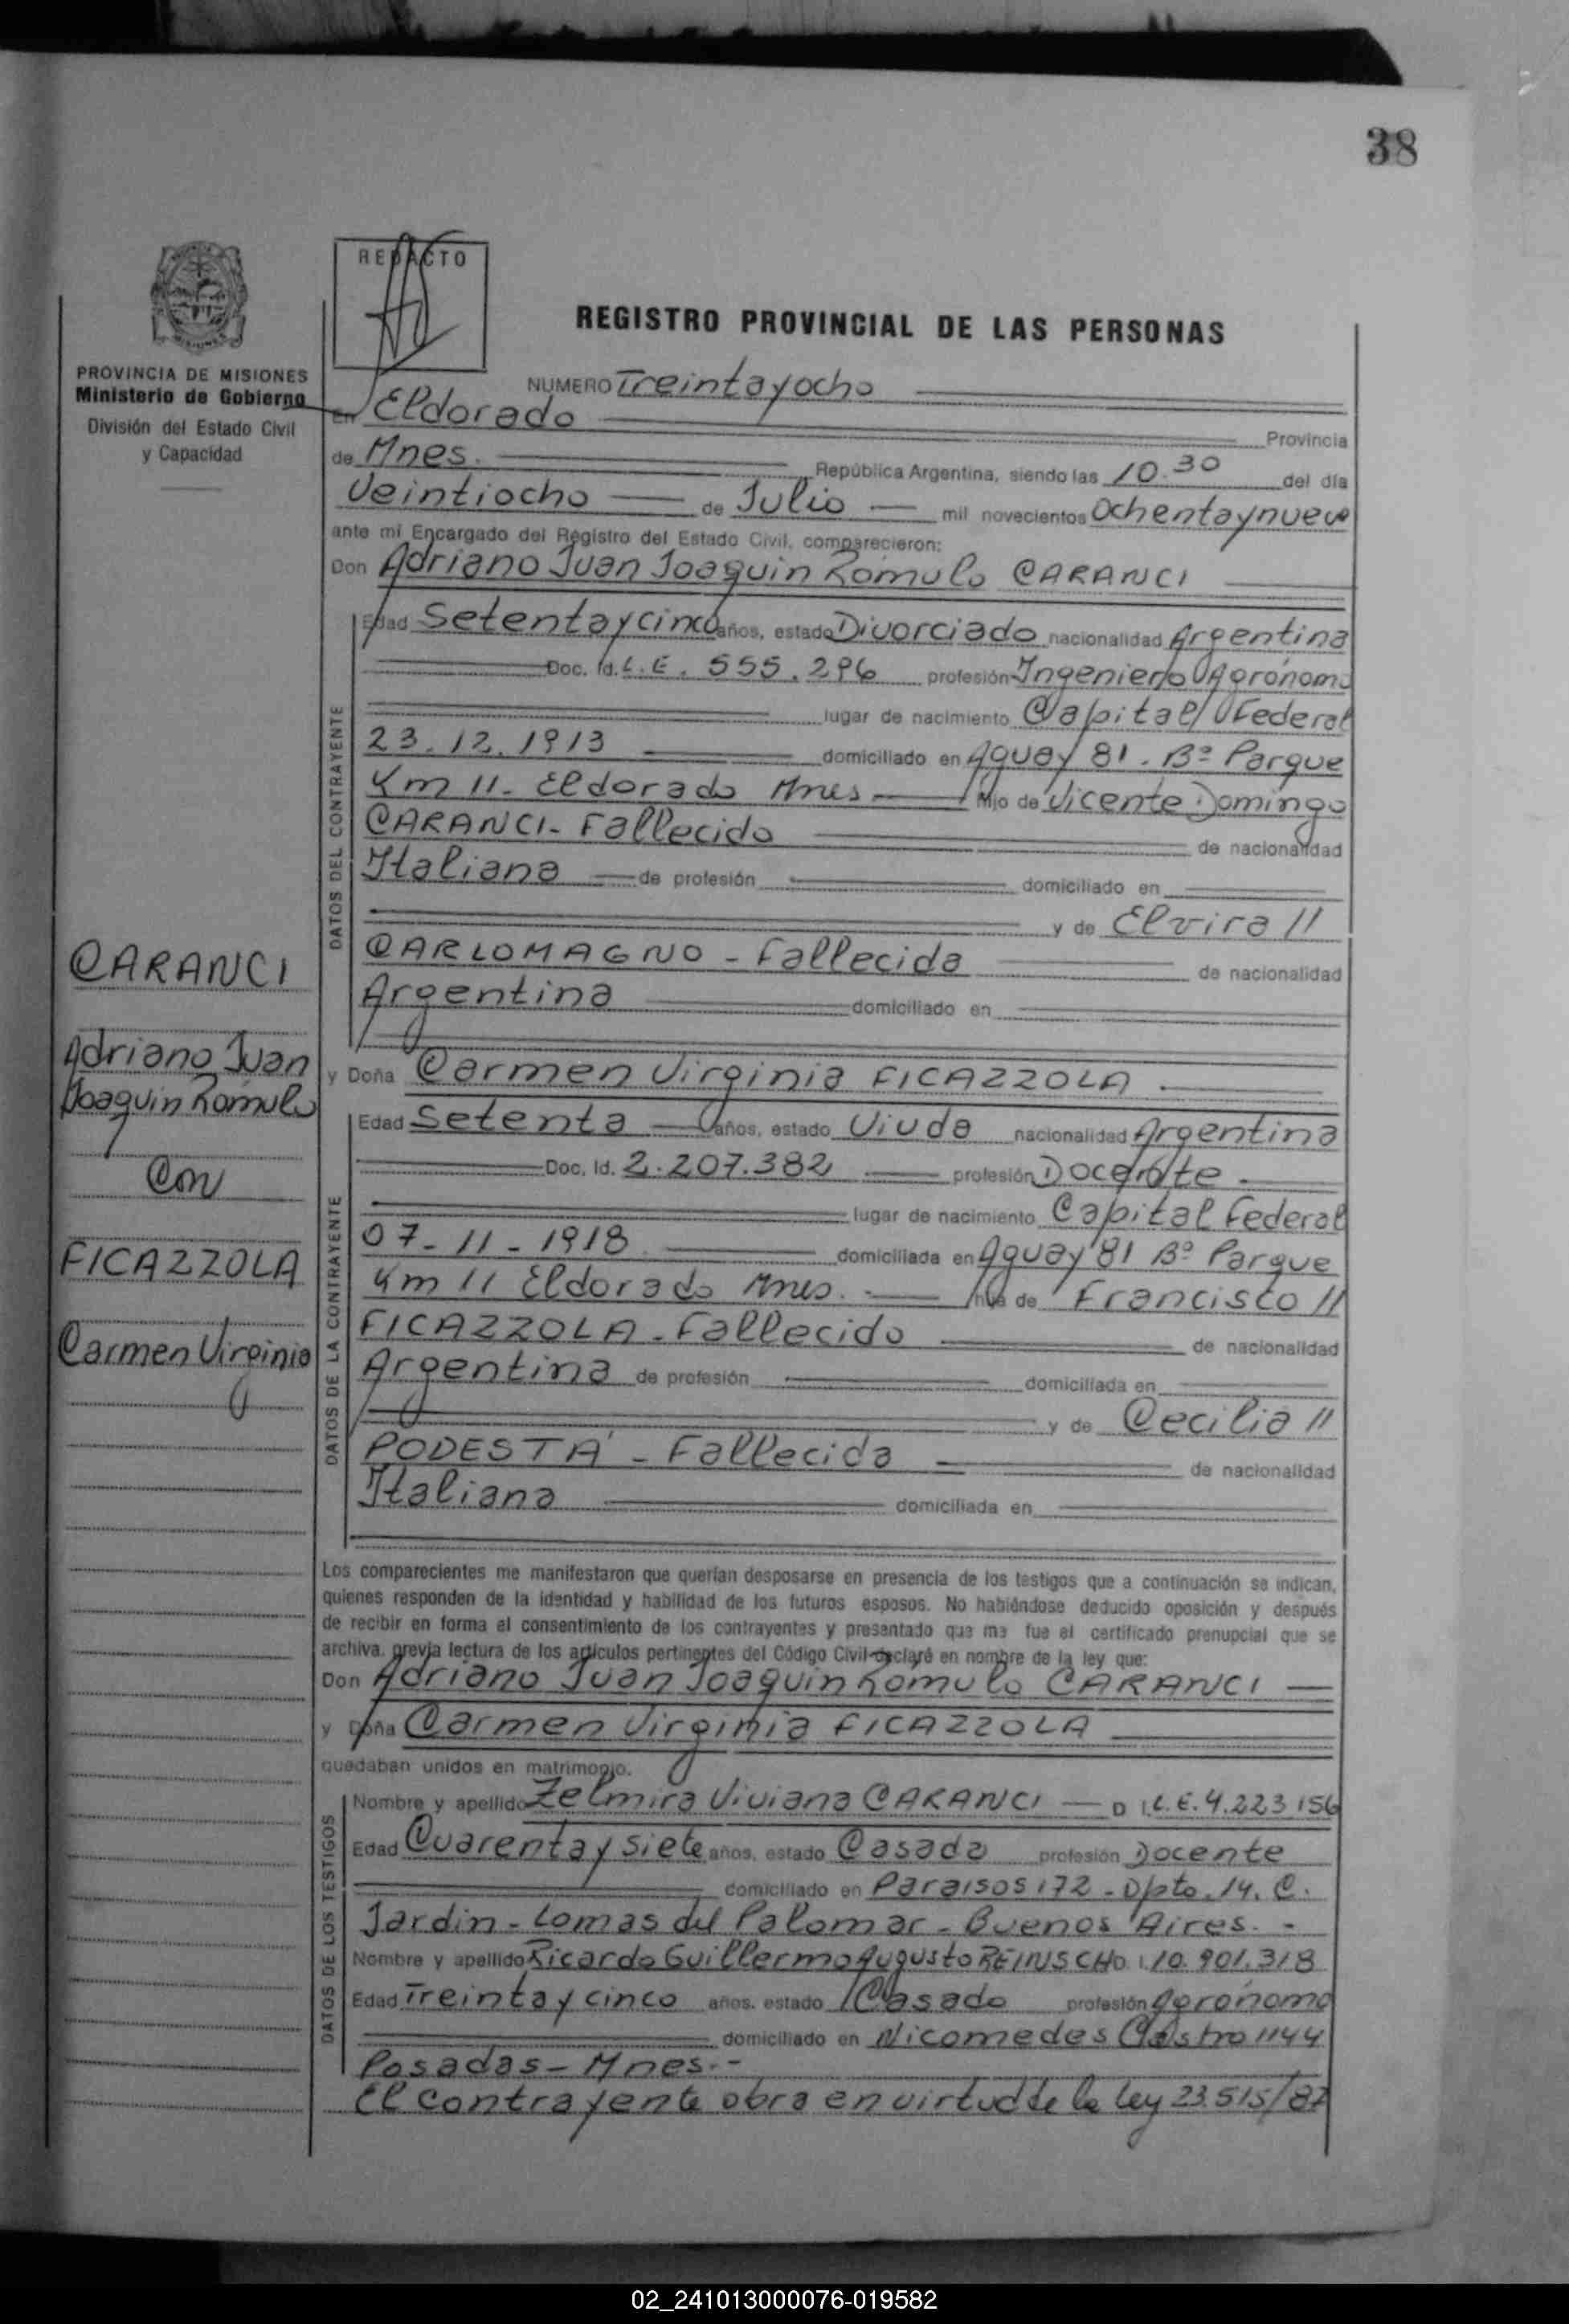 38
REDACTO
REGISTRO PROVINCIAL DE LAS PERSONAS
PROVINCIA DE MISIONES
Ministerio de Gobierno
División del Estado Civil
y Capacidad
NUMERO Treintayocho
En Eldorado Provincia
de Mnes. República Argentina, siendo las 10.30 del día
Veintiocho de Julio mil novecientos Ochentaynueve
ante mí Encargado del Registro del Estado Civil, comparecieron:
Don Adriano Juan Joaquin Rómulo CARANCI
DATOS DEL CONTRAYENTE
Edad Setentaycinco años, estado Divorciado nacionalidad Argentina
Doc. Id. L.E. 555.296 profesión Ingeniero Agrónomo
lugar de nacimiento Capital Federal
23.12.1913 domiciliado en Aguay 81. Bº Parque
Km 11- Eldorado Mnes hijo de Vicente Domingo
CARANCI- Fallecido de nacionalidad
Italiana de profesión domiciliado en
y de Elvira //
CARLOMAGNO - Fallecida de nacionalidad
Argentina domiciliado en
CARANCI
Adriano Juan
Joaquin Rómulo
Con
FICAZZOLA
Carmen Virginia
y Doña Carmen Virginia FICAZZOLA
DATOS DE LA CONTRAYENTE
Edad Setenta años, estado Viuda nacionalidad Argentina
Doc. Id. 2.207.382 profesión Docente
lugar de nacimiento Capital Federal
07-11-1918 domiciliada en Aguay 81 Bº Parque
Km 11 Eldorado Mnes. hija de Francisco //
FICAZZOLA - Fallecido de nacionalidad
Argentina de profesión domiciliada en
y de Cecilia //
PODESTÁ - Fallecida de nacionalidad
Italiana domiciliada en
Los comparecientes me manifestaron que querían desposarse en presencia de los testigos que a continuación se indican,
quienes responden de la identidad y habilidad de los futuros esposos. No habiéndose deducido oposición y después
de recibir en forma el consentimiento de los contrayentes y presentado que me fue el certificado prenupcial que se
archiva, previa lectura de los artículos pertinentes del Código Civil declaré en nombre de la ley que:
Don Adriano Juan Joaquin Romulo CARANCI
y Doña Carmen Virginia FICAZZOLA
quedaban unidos en matrimonio.
DATOS DE LOS TESTIGOS
Nombre y apellido Zelmira Viviana CARANCI D I. L.E. 4.223 156
Edad Cuarentaysiete años, estado Casada profesión Docente
domiciliado en Paraisos 172 - Dpto. 14. C.
Jardin - Lomas del Palomar - Buenos Aires. -
Nombre y apellido Ricardo Guillermo Augusto REINISCH D. I. 10.901.318
Edad Treintaycinco años. estado Casado profesión Agrónomo
domiciliado en Nicomedes Castro 1144
Posadas - Mnes.-
El contrayente obra en virtud de la ley 23.515/87
02_241013000076-019582